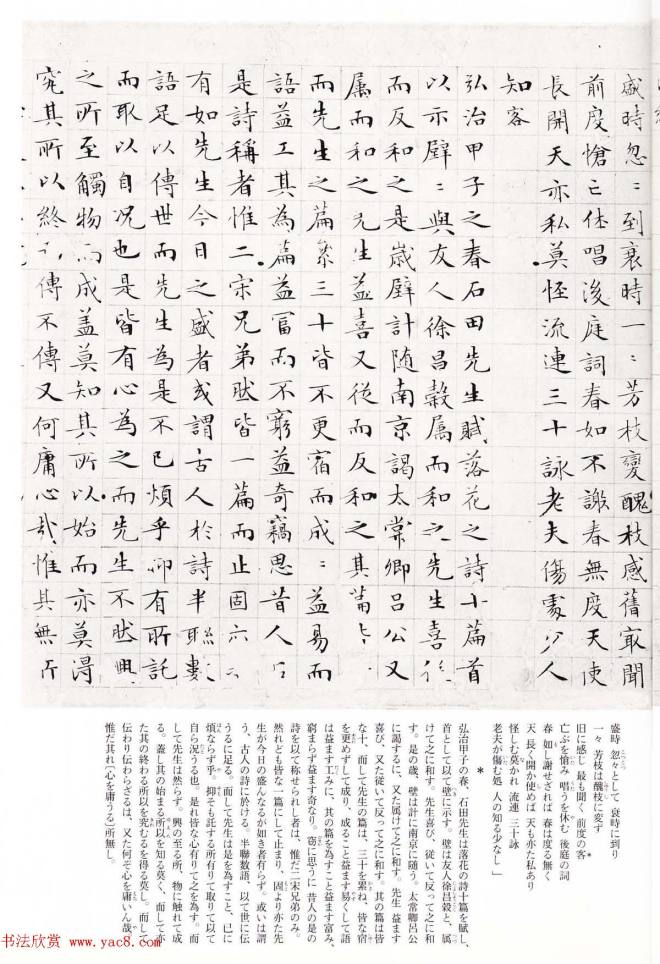 盛時忽〻到衰時一〻芳枝變醜枝感舊最聞
前度愴亡休唱後庭詞春如不謝春無度天使
長開天亦私莫怪流連三十詠老夫傷處少人
知客
弘治甲子之春石田先生賦落花之詩十篇首
以示壁〻與友人徐昌穀属而和之先生喜從
而反和之是歲壁計随南京謁太常卿呂公又
属而和之先生益喜又從而反和之其篇
而先生之篇累三十皆不更宿而成〻益易而
語益工其為篇益富而不窮益奇竊思昔人
是詩稱者惟二宋兄弟然皆一篇而止固亦
有如先生今日之盛者或謂古人於詩半聯數
語足以傳世而先生為是不已煩乎抑有所託
而取以自况也是皆有心為之而先生不然興
之所至觸物而成盖莫知其所以始而亦莫得
究其所以終而傳不傳又何庸心哉惟其無所
盛時 忽々として 衰時に到り
一々 芳枝は醜枝に変ず
旧に感じ 最も聞く 前度の客*
亡ぶを愴み 唱うを休む 後庭の詞
春 如し謝せざれば 春は度る無く
天 長く開か使めば 天も亦た私あり
怪しむ莫かれ 流連 三十詠
老夫が傷む処 人の知る少なし」
*
弘治甲子の春、石田先生は落花の詩十篇を賦し、
首として以て壁に示す。壁は友人徐昌穀と、属
けて之に和す。先生喜び、従いて反って之に和
す。是の歳、壁は計に南京に随う。太常卿呂公
に謁するに、又た属けて之に和す。先生 益ます
喜び、又た従いて反って之に和す。其の篇は皆
な十、而して先生の篇は、三十を累ね、皆な宿
を更めずして成り、成ること益ます易くして語
は益ます工みに、其の篇を為すこと益ます富み、
窮まらず益ます奇なり。窃に思うに 昔人の是の
詩を以て称せられし者は、惟だ二宋兄弟のみ。
然れども皆な一篇にして止まり、固より亦た先
生が今日の盛んなるが如き者有らず。或いは謂
う、古人の詩に於ける 半聯数語、以て世に伝
うるに足る。而して先生は是を為すこと、已に
煩ならず乎。抑そも託する所有りて取りて以て
自ら況うる也。是れ皆な心有りて之を為す。而
して先生は然らず。興の至る所、物に触れて成
る。蓋し其の始まる所以を知る莫く、而して亦
た其の終わる所以を究むるを得る莫し。而して
伝わり伝わらざるは、又た何ぞ心を庸いん哉。
惟だ其れ〔心を庸うる〕所無し。
书法欣赏 www.yac8.com